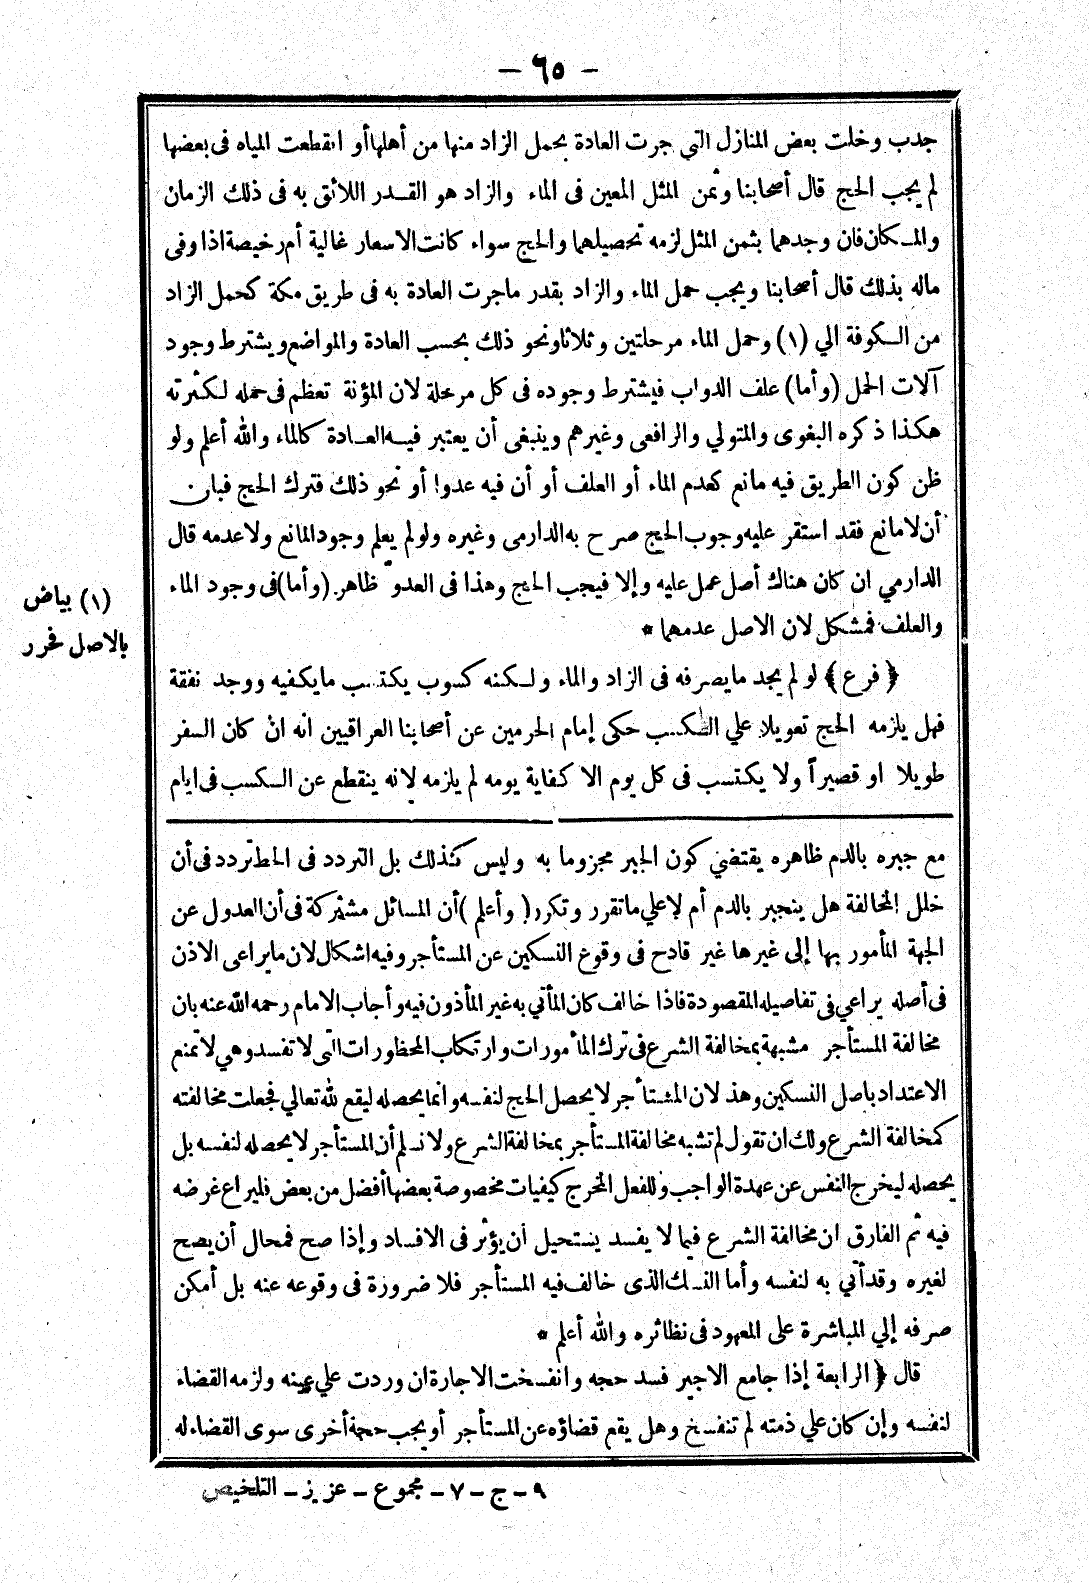 — ٦٥ —
جدب وخلت بعض المنازل التي جرت العادة بحمل الزاد منها من أهلها أو انقطعت المياه فى بعضها
لم يجب الحج قال أصحابنا وثمن المثل المعين فى الماء والزاد هو القدر اللائق به فى ذلك الزمان
والمكان فان وجدهما بثمن المثل لزمه تحصيلهما والحج سواء كانت الاسعار غالية أم رخيصة اذا وفى
ماله بذلك قال أصحابنا ويجب حمل الماء والزاد بقدر ماجرت العادة به فى طريق مكة كحمل الزاد
من الكوفة الي (١) وحمل الماء مرحلتين وثلاثا ونحو ذلك بحسب العادة والمواضع ويشترط وجود
آلات الحمل (وأما) علف الدواب فيشترط وجوده فى كل مرحلة لان المؤنة تعظم فى حمله لكثرته
هكذا ذكره البغوى والمتولي والرافعى وغيرهم وينبغى أن يعتبر فيه العادة كالماء والله أعلم ولو
ظن كون الطريق فيه مانع كعدم الماء أو العلف أو أن فيه عدوا أو نحو ذلك فترك الحج فبان
أن لا مانع فقد استقر عليه وجوب الحج صرح به الدارمى وغيره ولو لم يعلم وجود المانع ولا عدمه قال
الدارمي ان كان هناك أصل عمل عليه وإلا فيجب الحج وهذا فى العدو ظاهر (وأما) فى وجود الماء
والعلف فمشكل لان الاصل عدمهما *
﴿ فرع ﴾ لو لم يجد مايصرفه فى الزاد والماء ولكنه كسوب يكتسب مايكفيه ووجد نفقة
فهل يلزمه الحج تعويلا علي التكسب حكى إمام الحرمين عن أصحابنا العراقيين انه ان كان السفر
طويلا او قصيرا ولا يكتسب فى كل يوم الا كفاية يومه لم يلزمه لانه ينقطع عن الكسب فى ايام
(١) بياض
بالاصل فحرر
مع جبره بالدم ظاهره يقتضي كون الجبر مجزوما به وليس كذلك بل التردد فى الحط تردد فى أن
خلل المخالفة هل ينجبر بالدم أم لا علي ماتقرر وتكرر (وأعلم) أن المسائل مشتركة فى أن العدول عن
الجهة المأمور بها إلى غيرها غير قادح فى وقوع النسكين عن المستأجر وفيه اشكال لان مايراعى الاذن
فى أصله يراعي فى تفاصيله المقصودة فاذا خالف كان المأتي به غير المأذون فيه وأجاب الامام رحمه الله عنه بان
مخالفة المستأجر مشبهة بمخالفة الشرع فى ترك المأمورات وارتكاب المحظورات التى لا تفسد وهي لا تمنع
الاعتداد باصل النسكين وهذ لان المستأجر لا يحصل الحج لنفسه وانما يحصله ليقع لله تعالي فجعلت مخالفته
كمخالفة الشرع ولك ان تقول لم تشبه مخالفة المستأجر بمخالفة الشرع ولا نسلم أن المستأجر لا يحصله لنفسه بل
يحصله ليخرج النفس عن عهدة الواجب وللفعل المخرج كيفيات مخصوصة بعضها أفضل من بعض فليراع غرضه
فيه ثم الفارق ان مخالفة الشرع فيما لا يفسد يستحيل ان يؤثر فى الافساد وإذا صح فمحال أن يصح
لغيره وقد أتي به لنفسه وأما النسك الذى خالف فيه المستأجر فلا ضرورة فى وقوعه عنه بل أمكن
صرفه إلي المباشرة على المعهود فى نظائره والله أعلم *
قال ﴿ الرابعة إذا جامع الاجير فسد حجه وانفسخت الاجارة ان وردت علي عينه ولزمه القضاء
لنفسه وإن كان علي ذمته لم تنفسخ وهل يقع قضاؤه عن المستأجر أو يجب حجة أخرى سوى القضاء له
٩ - ج - ٧ - مجموع - عزيز - التلخيص